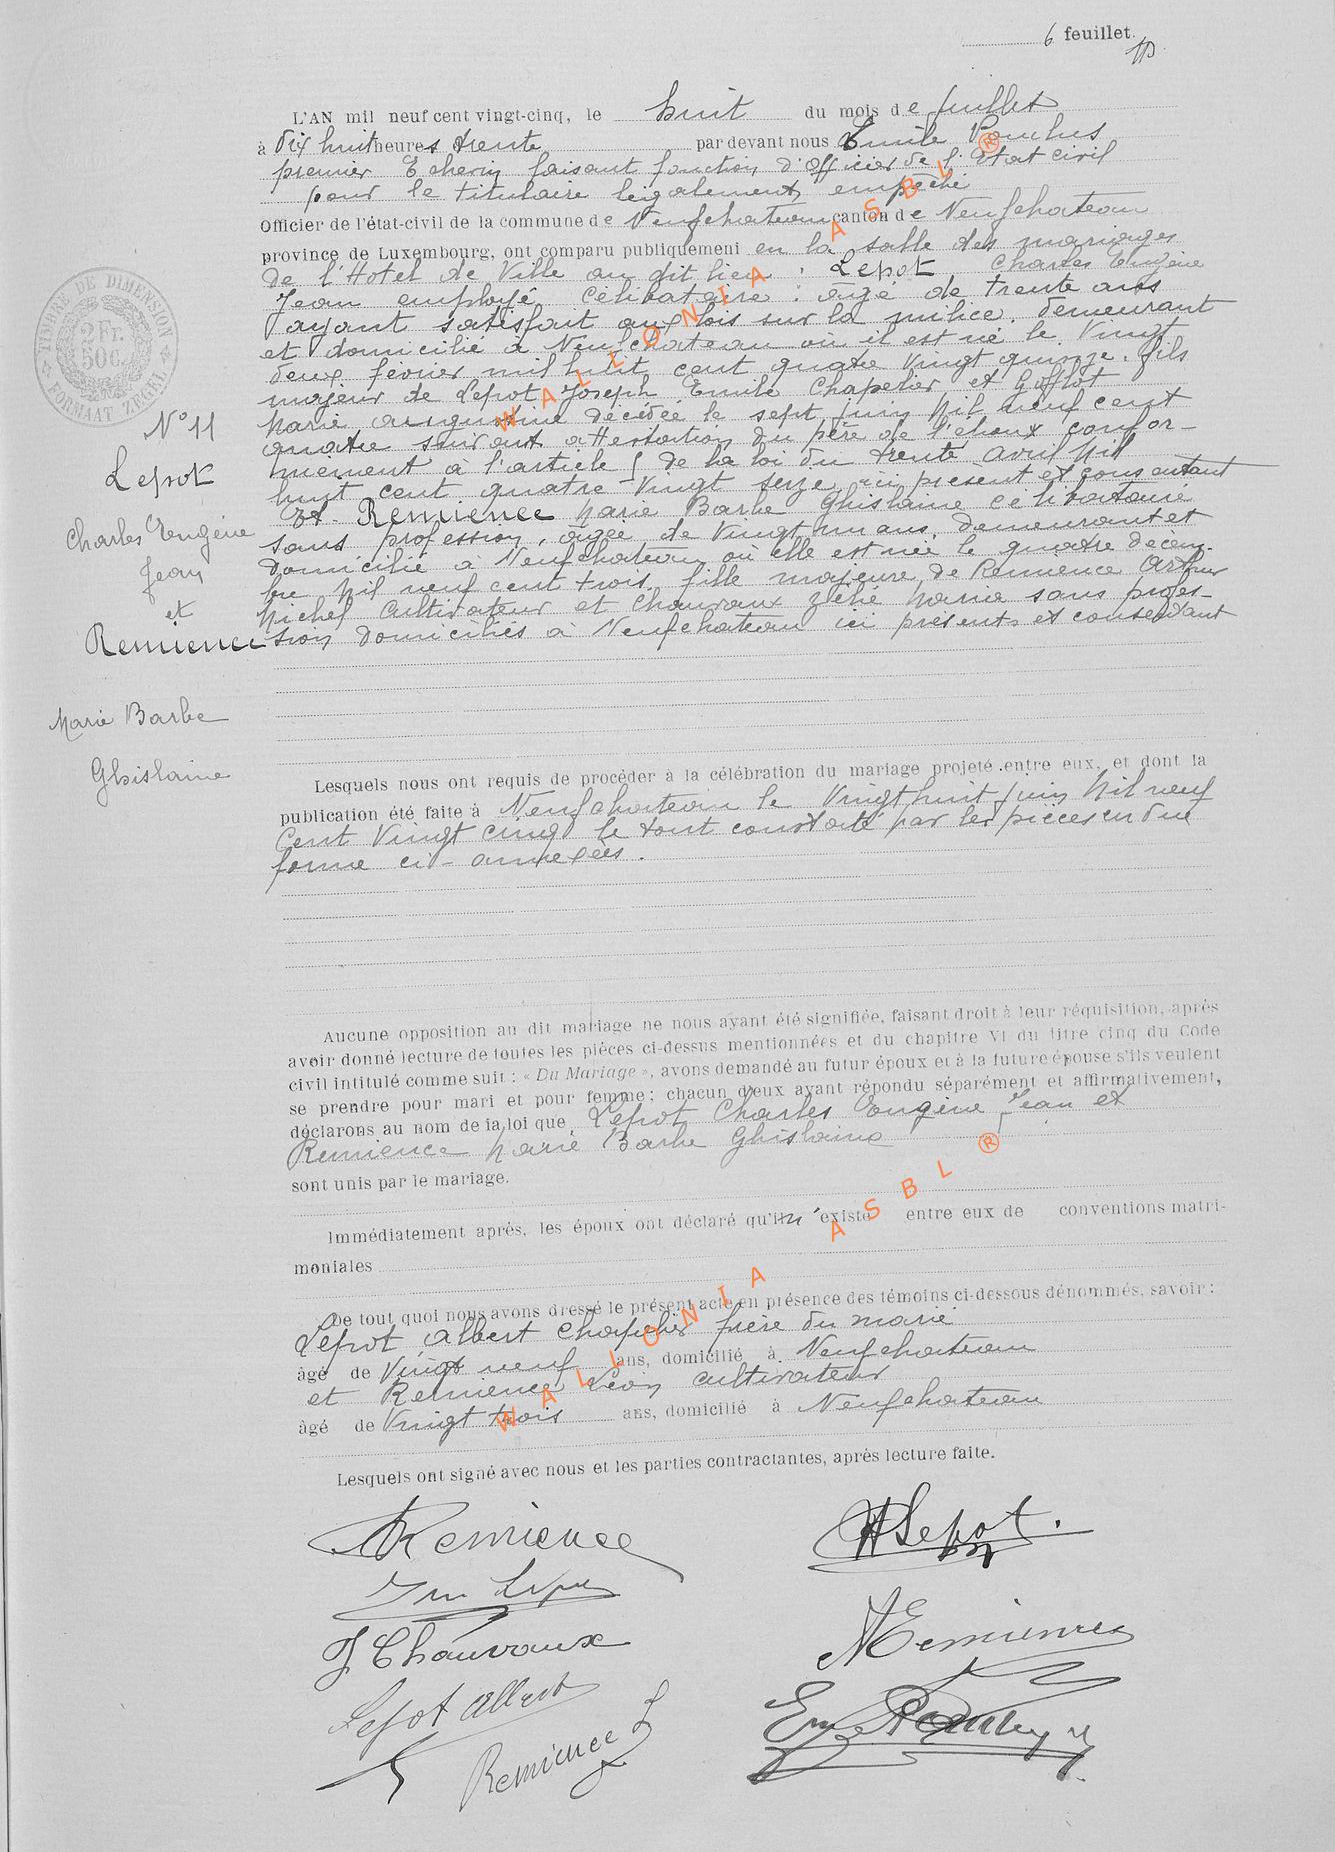 6 feuillet.
L'AN mil neuf cent vingt-cinq, le huit du mois de Juillet
à dix huit heures trente par devant nous Emile
premier Echevin faisant fonction d'officier de l'Etat civil
pour le titulaire légalement empêché
Officier de l'état-civil de la commune de Neufchateau canton de Neufchateau
province de Luxembourg, ont comparu publiquement en la salle des mariages
de l'Hotel de Ville au dit lieu : Lepot Charles Eugène
Jean employé célibataire : âgé de trente ans
ayant satisfait aux lois sur la milice, demeurant
et domicilié à Neufchateau où il est né le Vingt
deux février mil huit cent quatre vingt quinze. fils
majeur de Lepot Joseph Emile Chapelier et Gofflot
Marie décédée le sept juin Mil neuf cent
quatre suivant attestation du père de l'époux confor-
mement à l'article 5 de la loi du trente avril Mil
huit cent quatre Vingt seize ici présent et consentant
Et. Remience Marie Barbe Ghislaine célibataire
sans profession, âgée de Vingt un ans, demeurant et
domicilié à Neufchateau où elle est née le quatre décem-
bre Mil neuf cent trois. fille majeure de Remience Arthur
Michel Cultivateur et Chauvaux Zélie Marie sans profes-
sion domiciliés à Neufchateau ici présents et consentant
TIMBRE DE DIMENSION
2 Fr.
50 C.
FORMAAT ZEGEL
N° 11
Lepot
Charles Eugène
Jean
et
Remience
Marie Barbe
Ghislaine
Lesquels nous ont requis de procéder à la célébration du mariage projeté entre eux, et dont la
publication été faite à Neufchateau le Vingt huit juin Mil neuf
Cent Vingt cinq le tout constaté par les pièces en due
forme ci-annexées.
Aucune opposition au dit mariage ne nous ayant été signifiée, faisant droit à leur réquisition, après
avoir donné lecture de toutes les pièces ci-dessus mentionnées et du chapitre VI du titre cinq du Code
civil intitulé comme suit : « Du Mariage », avons demandé au futur époux et à la future épouse s'ils veulent
se prendre pour mari et pour femme; chacun d'eux ayant répondu séparément et affirmativement,
déclarons au nom de la loi que Lepot Charles Eugène Jean et
Remience Marie Barbe Ghislaine
sont unis par le mariage.
Immédiatement après, les époux ont déclaré qu'il n'existe entre eux de conventions matri-
moniales
De tout quoi nous avons dressé le présent acte en présence des témoins ci-dessous dénommés, savoir :
Lepot Albert Chapelier frère du marié
âgé de Vingt neuf ans, domicilié à Neufchateau
et Remience Léon cultivateur
âgé de Vingt trois ans, domicilié à Neufchateau
Lesquels ont signé avec nous et les parties contractantes, après lecture faite.
Remience
Lepot.
Chauvaux
Remience
Lepot Albert
Remience L
WALLONIA ASBL ®
WALLONIA ASBL ®